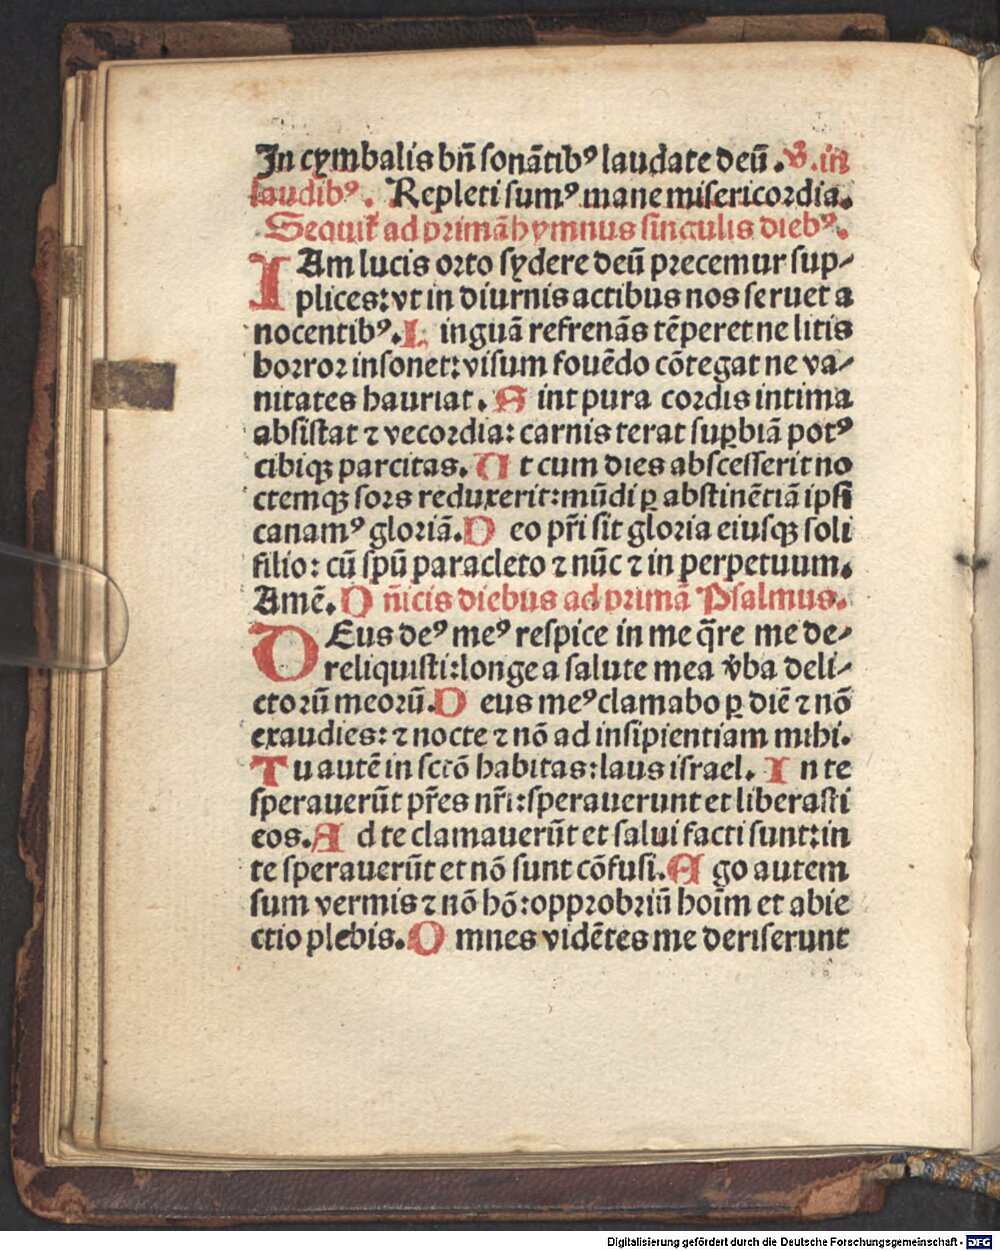 In cymbalis bñ sonãtibꝰ laudate deũ. ℣. in
laudibꝰ. Repleti sumꝰ mane misericordia.
Sequit᷑ ad primã hymnus singulis diebꝰ.
IAm lucis orto sydere deũ precemur sup-
plices: vt in diurnis actibus nos seruet a
nocentibꝰ. Linguã refrenãs tẽperet ne litis
horror insonet: visum fouẽdo cõtegat ne va-
nitates hauriat. Sint pura cordis intima
absistat ⁊ vecordia: carnis terat suꝑbiã potꝰ
cibiqꝫ parcitas. Ut cum dies abscesserit no
ctemqꝫ sors reduxerit: mũdi ꝑ abstinẽtiã ipsi
canamꝰ gloriã. Deo pr̃i sit gloria eiusqꝫ soli
filio: cũ spũ paracleto ⁊ nũc ⁊ in perpetuum.
Amẽ. Dñicis diebus ad primã Psalmus.
DEus deꝰ meꝰ respice in me q̃re me de-
reliquisti: longe a salute mea v̾ba deli-
ctorũ meorũ. Deus meꝰ clamabo ꝑ diẽ ⁊ nõ
exaudies: ⁊ nocte ⁊ nõ ad insipientiam mihi.
Tu autẽ in sctõ habitas: laus israel. In te
sperauerũt pr̃es nr̃i: sperauerunt et liberasti
eos. Ad te clamauerũt et salui facti sunt: in
te sperauerũt et nõ sunt cõfusi. Ego autem
sum vermis ⁊ nõ hõ: opprobriũ hoĩm et abie
ctio plebis. Omnes vidẽtes me deriserunt
Digitalisierung gefördert durch die Deutsche Forschungsgemeinschaft - DFG